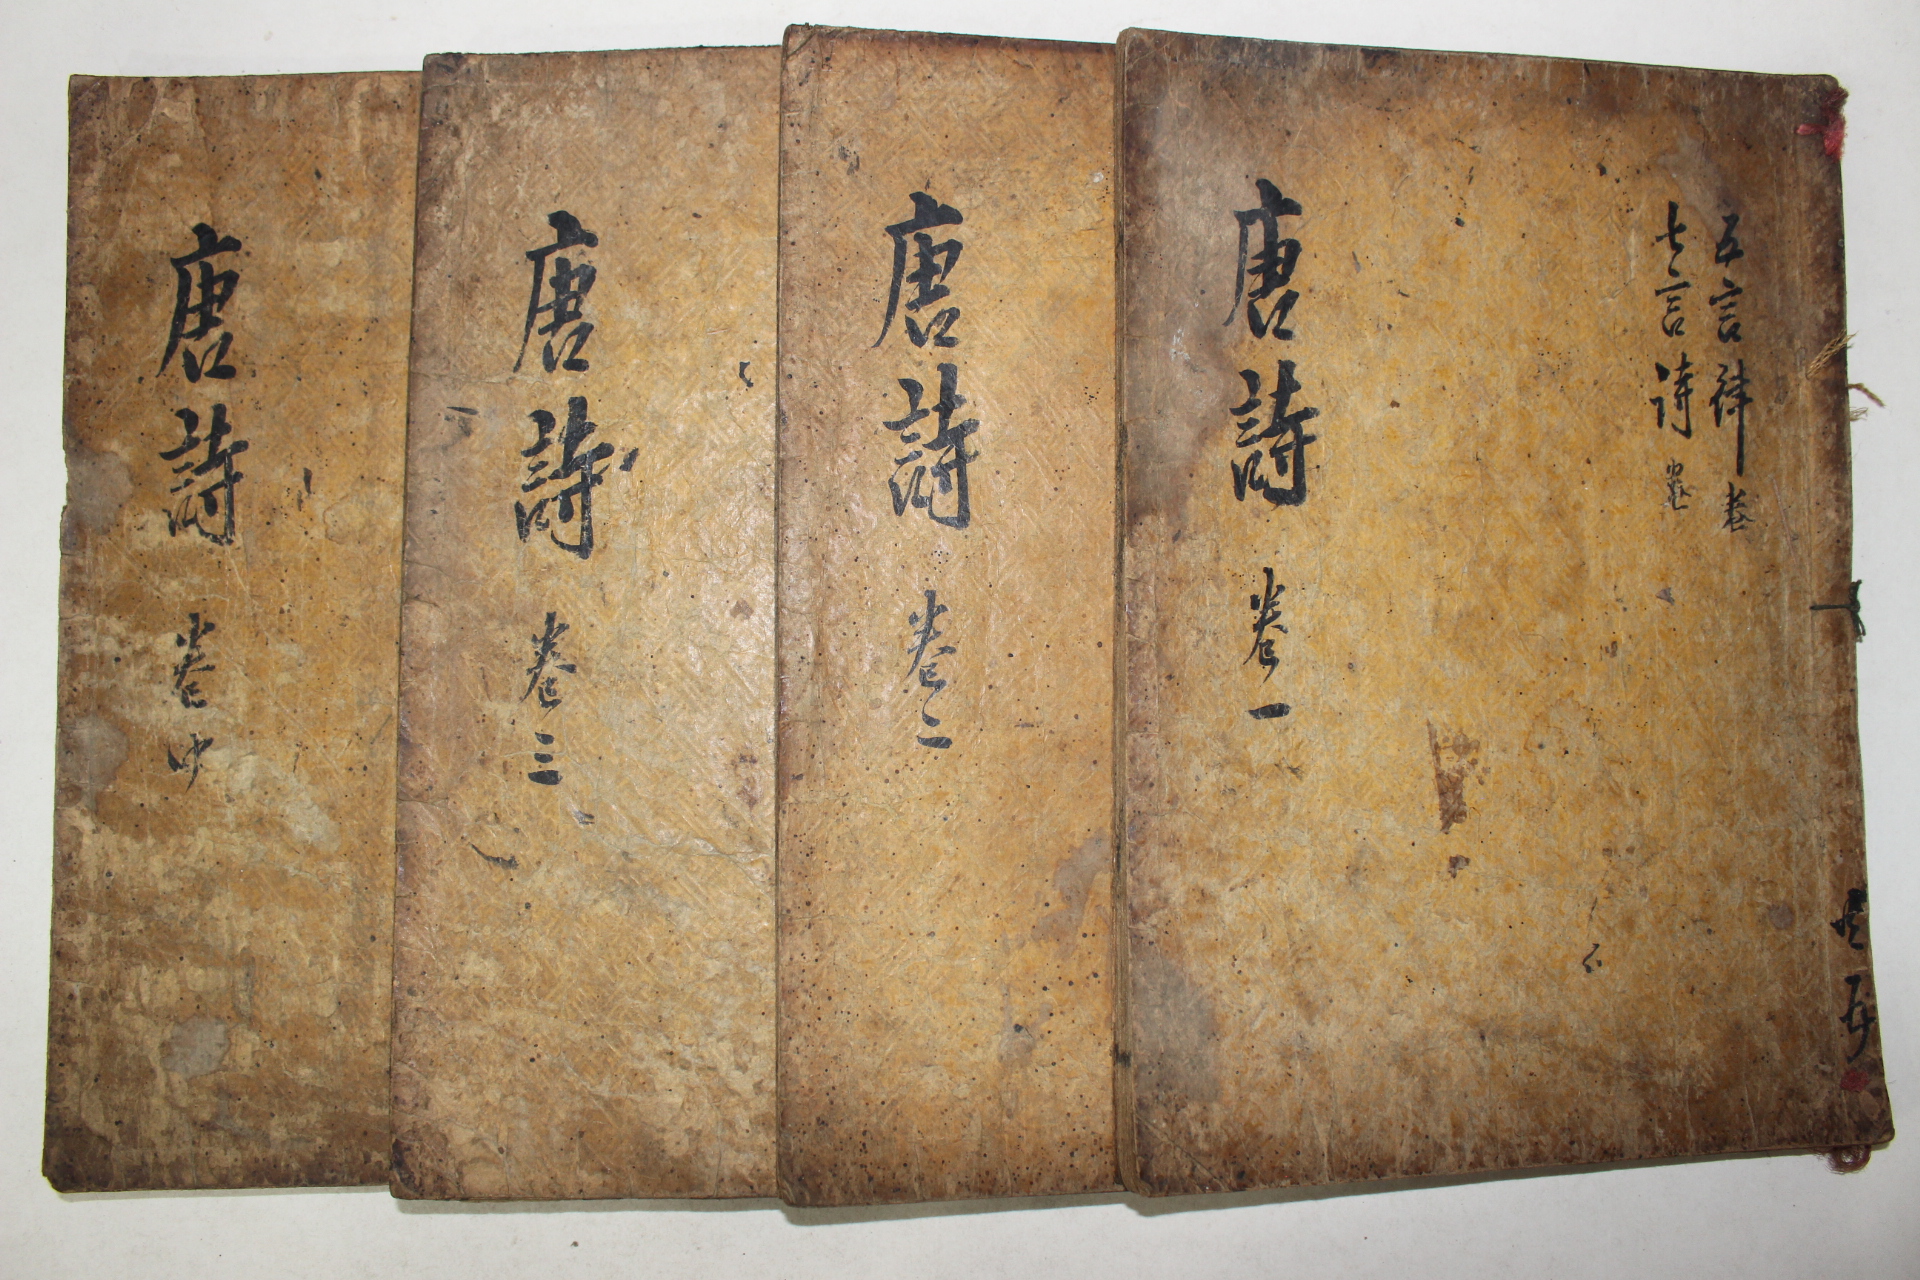 五言律 卷
七言詩 卷
唐詩 卷一
唐詩 卷二
唐詩 卷三
唐詩 卷中
共五